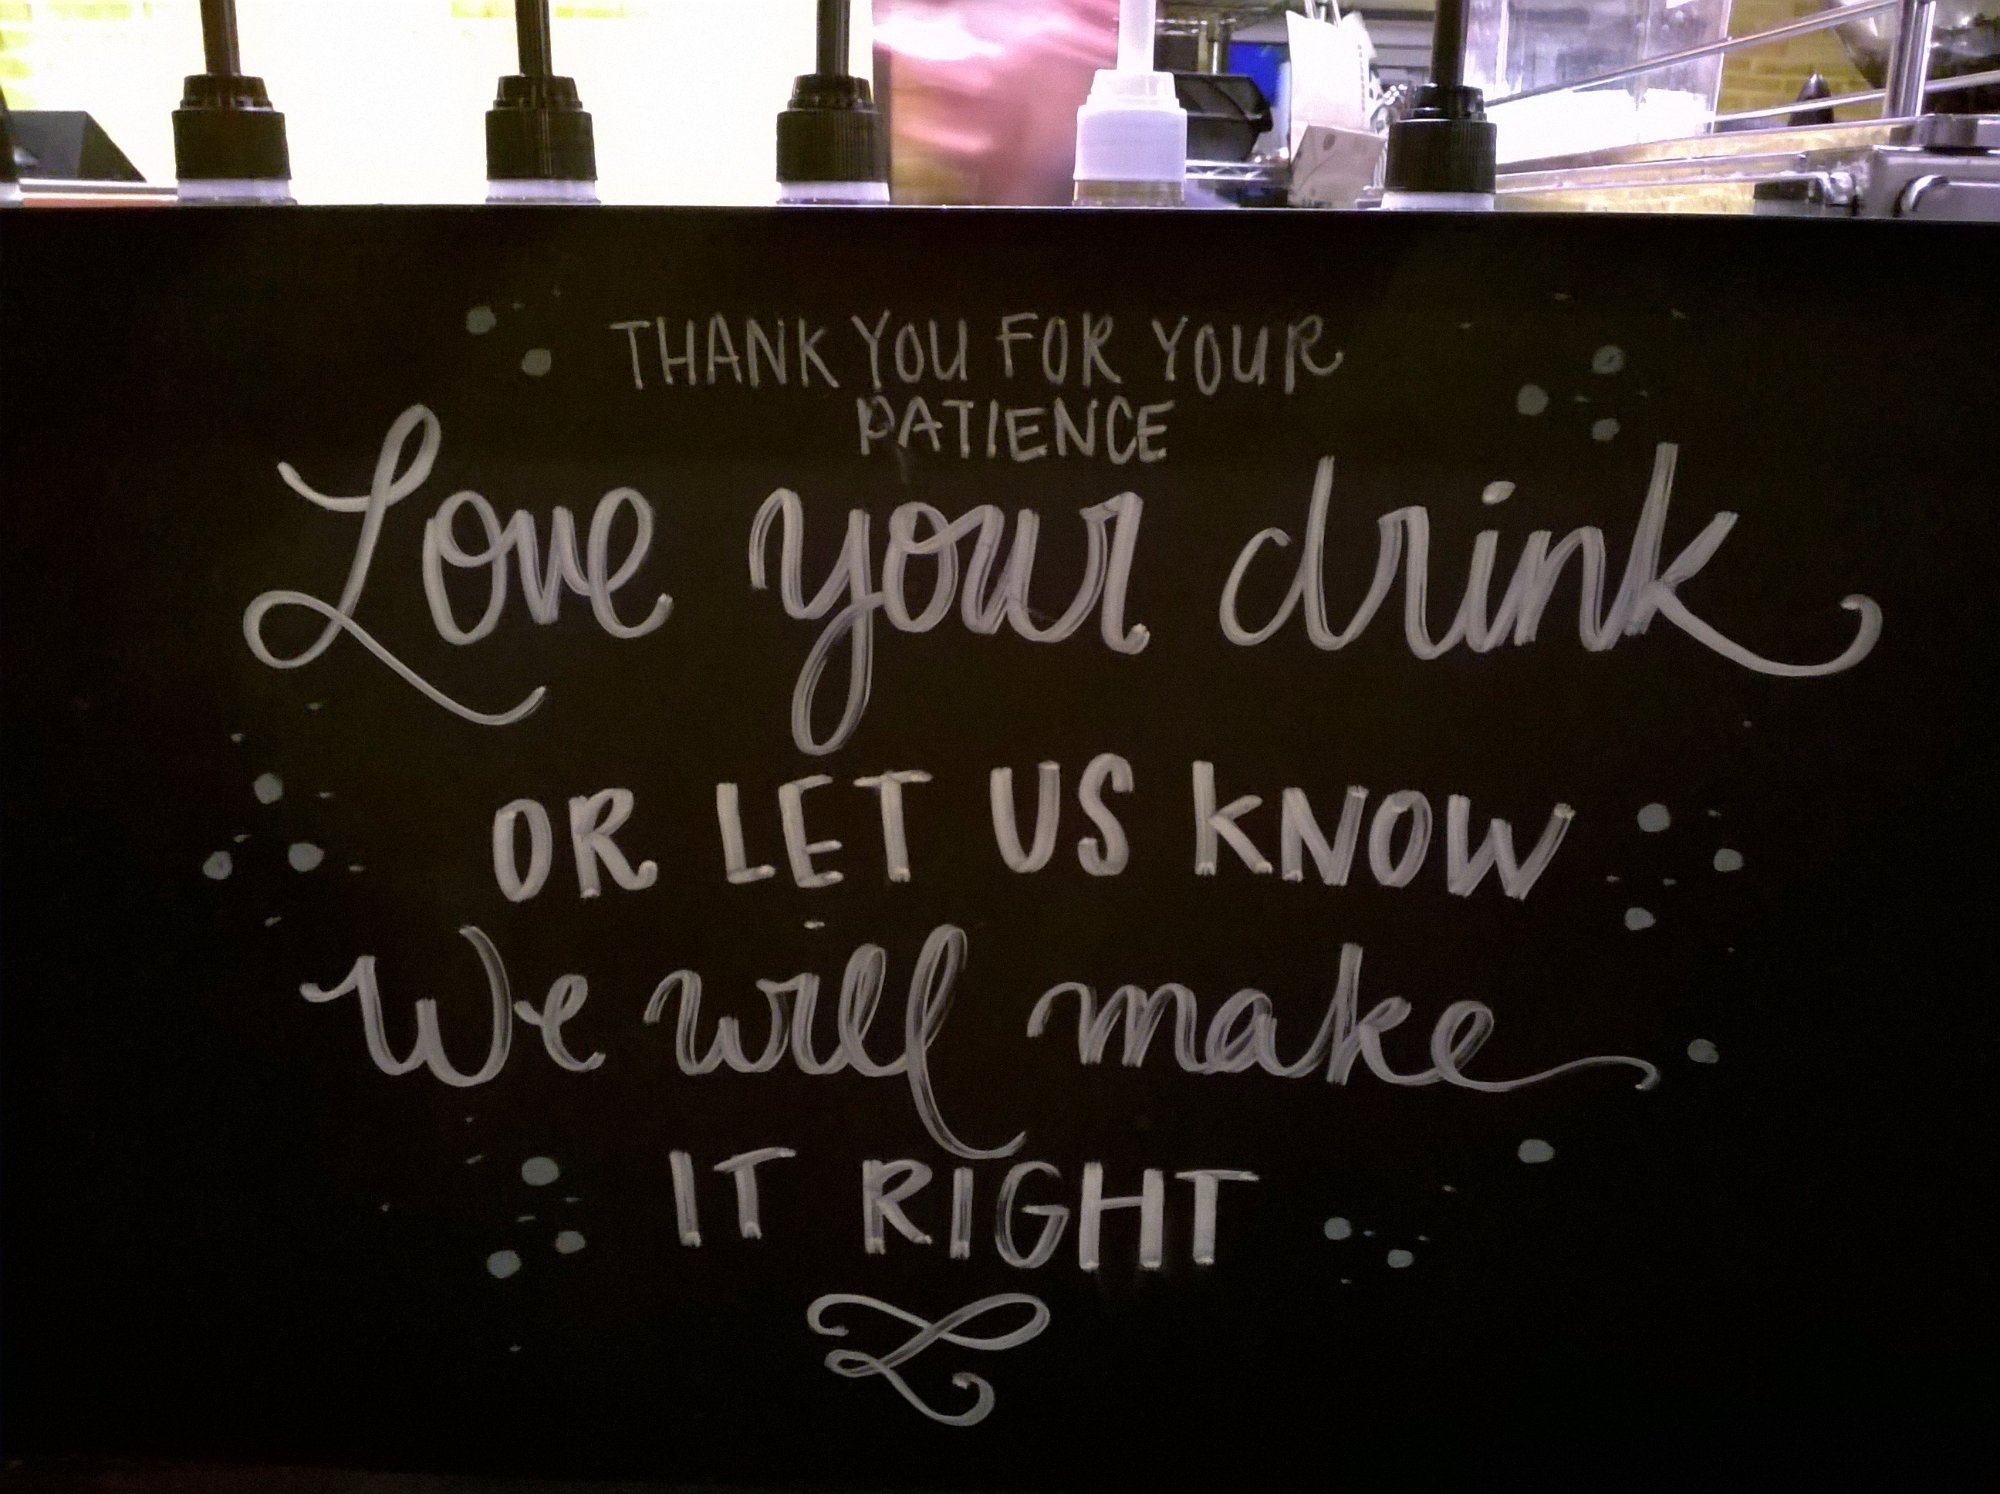 THANK YOU FOR YOUR
PATIENCE
Love your drink
OR LET US KNOW
We will make
IT RIGHT